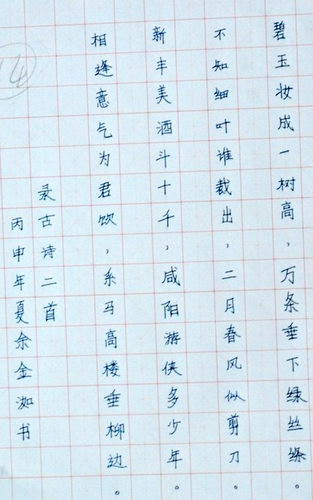 碧玉妆成一树高,万条垂下绿丝绦。
不知细叶谁裁出,二月春风似剪刀。
新丰美酒斗十千,咸阳游侠多少年。
相逢意气为君饮,系马高楼垂柳边。
录古诗二首
丙申年夏余金洳书
14